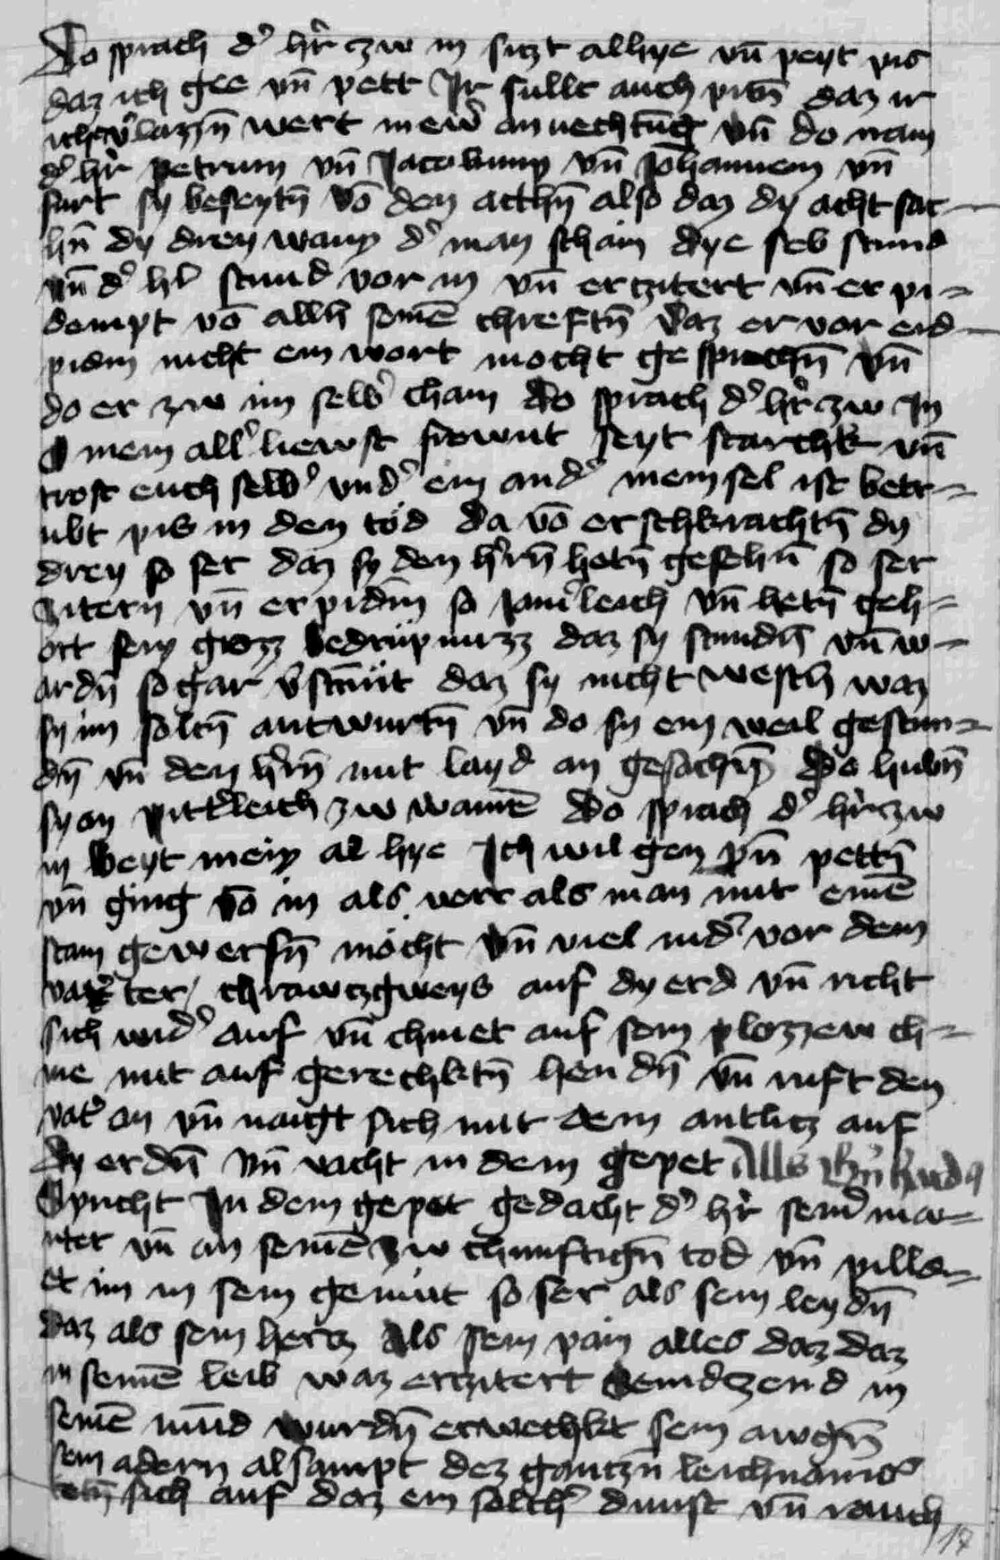 Do sprach d' h'r zw in sitzt alhye vn̄ peyt pis
daz ich gee vn̄ pett Ir sullt auch pitn̄ daz ir
icht v'lazzn̄ wert in ew' anvechtūg vn̄ do nam
d' h'r petrum vn̄ Jacobum vn̄ Johannem vn̄
furt sy beseytn̄ vō den acthn̄ also daz dy acht sac-
hn̄ dy drey wann d' man schain dye selb stund
vn̄ d' h'r stund vor in vn̄ erczitert vn̄ er pi-
dempt vō alln̄ seinē chreftn̄ daz er vor erd-
pidm nicht ein wort mocht gesprechn̄ vn̄
do er zw im selb' cham Do sprach d' h'r zw In
O mein all' liewst frewnt seyt starchk vn̄
trost euch selb' vnd' ein and' mein sel ist betr-
ubt pis in den tod da vō erschkrachtn̄ dy
drey so ser daz sy den h'rn̄ hetn̄ gesehn̄ so ser
zitern vn̄ erpidm̄ so jam'leich vn̄ hetn̄ geh-
ort sein grozz bedrüpnuzz daz sy stundn̄ vn̄ w-
ardn̄ so gar v'stūmt daz sy nicht westn̄ waz
sy im soltn̄ antwurtn̄ vn̄ do sy ein weil gestun-
dn̄ vn̄ den h'rn̄ mit layd an gesachn̄ Do hubn̄
sy an pitt'leich zw wainē Do sprach d' h'r zw
in beyt mein al hye Ich wil gen vn̄ pettn̄
vn̄ ging vō in als verr als man mit einē
stain gewerfn̄ möcht vn̄ viel nid' vor dem
vater chrawtzgweys auf dy erd vn̄ richt
sich wid' auf vn̄ chniet auf sein plozzew ch-
nie mit auf gerechktn̄ hendn̄ vn̄ ruft den
vat' an vn̄ naigt sich mit dem antlitz auf
dy erdn̄ vn̄ vacht in dem gepet Alls
Spricht In dem gepet gedacht d' h'r sein' mar-
tter vn̄ an seinē zw chunftign̄ tod vn̄ pilld-
et im in sein gemüt so ser als sein leydn̄
daz als sein hertz als sein pain alles daz daz
in seinē leib waz erczitert in
seinē mūd wurdn̄ erwechkt sein awgn̄
sein adern alsampt dez gantzn̄ leichnams
sich auf daz ein solch' dunst vn̄ rauch
17